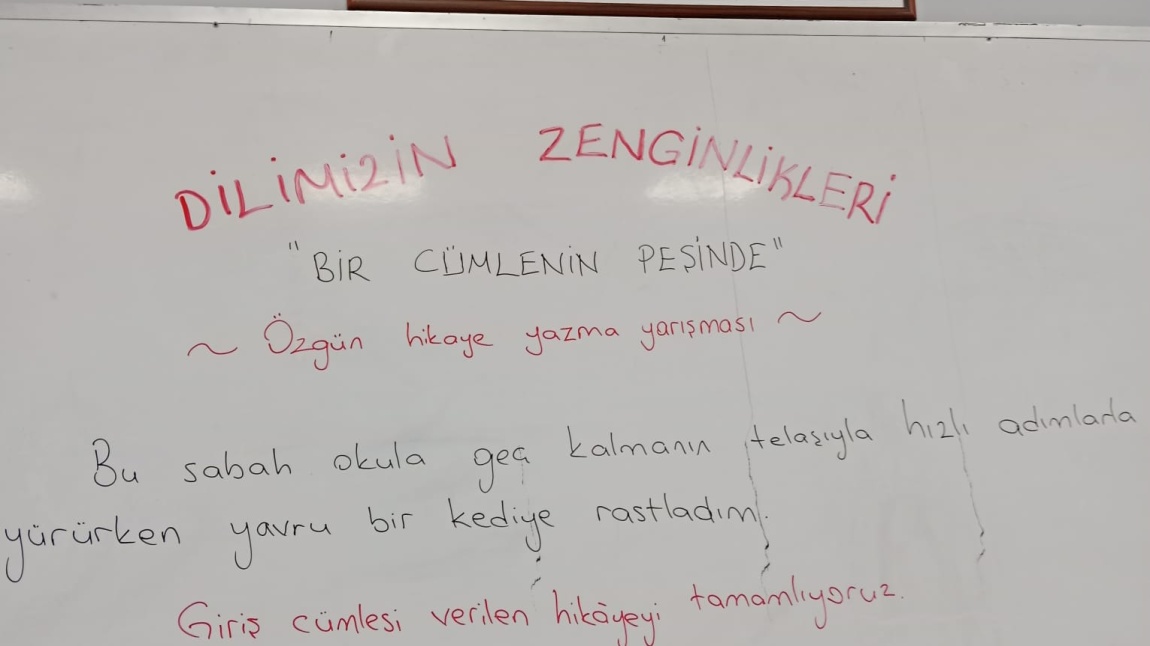 DİLİMİZİN ZENGİNLİKLERİ
"BİR CÜMLENİN PEŞİNDE"
~ Özgün hikaye yazma yarışması ~
Bu sabah okula geç kalmanın telaşıyla hızlı adımlarla
yürürken yavru bir kediye rastladım.
Giriş cümlesi verilen hikâyeyi tamamlıyoruz.